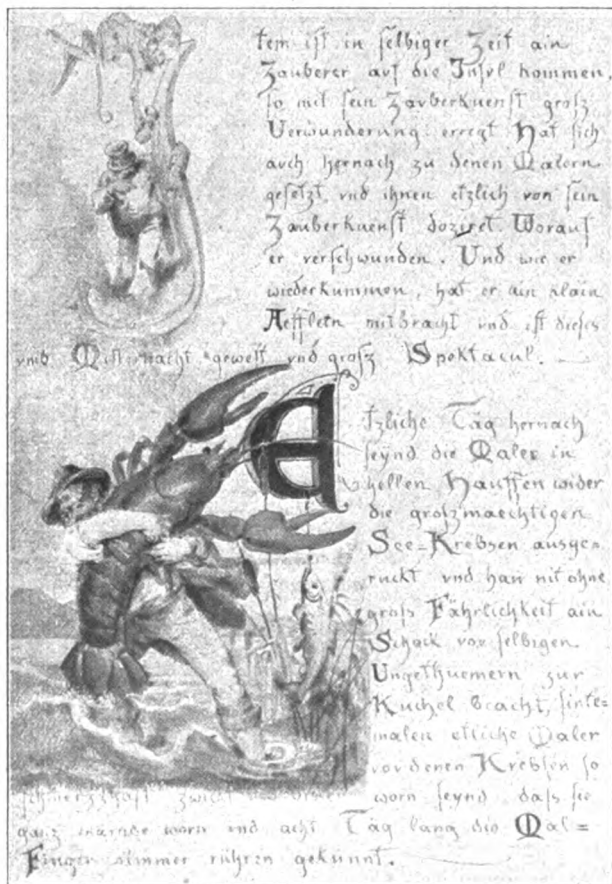 tem ist in selbiger Zeit ain
Zauberer auf die Insul kommen,
so mit sein Zauberkuenst grosz
Verwunderung erregt. Hat sich
auch hernach zu denen Malern
gesetzt, vnd ihnen etzlich von sein
Zauberkuenst doziret. Worauf
er verschwunden. Und wie er
wiederkummen, hat er ain klain
Aefflein mitbracht vnd ist dieses
vmb Mitternacht gewest vnd grosz Spektacul.
Etzliche Täg hernach
seynd die Maler in
hellen Hauffen wider
die groszmaechtigen
See-Krebsen ausge=
ruckt vnd han nit ohne
grosz Fährlichkeit ain
Schock von selbigen
Ungethuemern zur
Kuchel bracht, sinte=
malen etliche Maler
von denen Krebsen so
schmerzhaft zwickt worn seynd, dasz sie
ganz marode worn und acht Täg lang die Mal=
Finger nimmer rühren gekunnt.